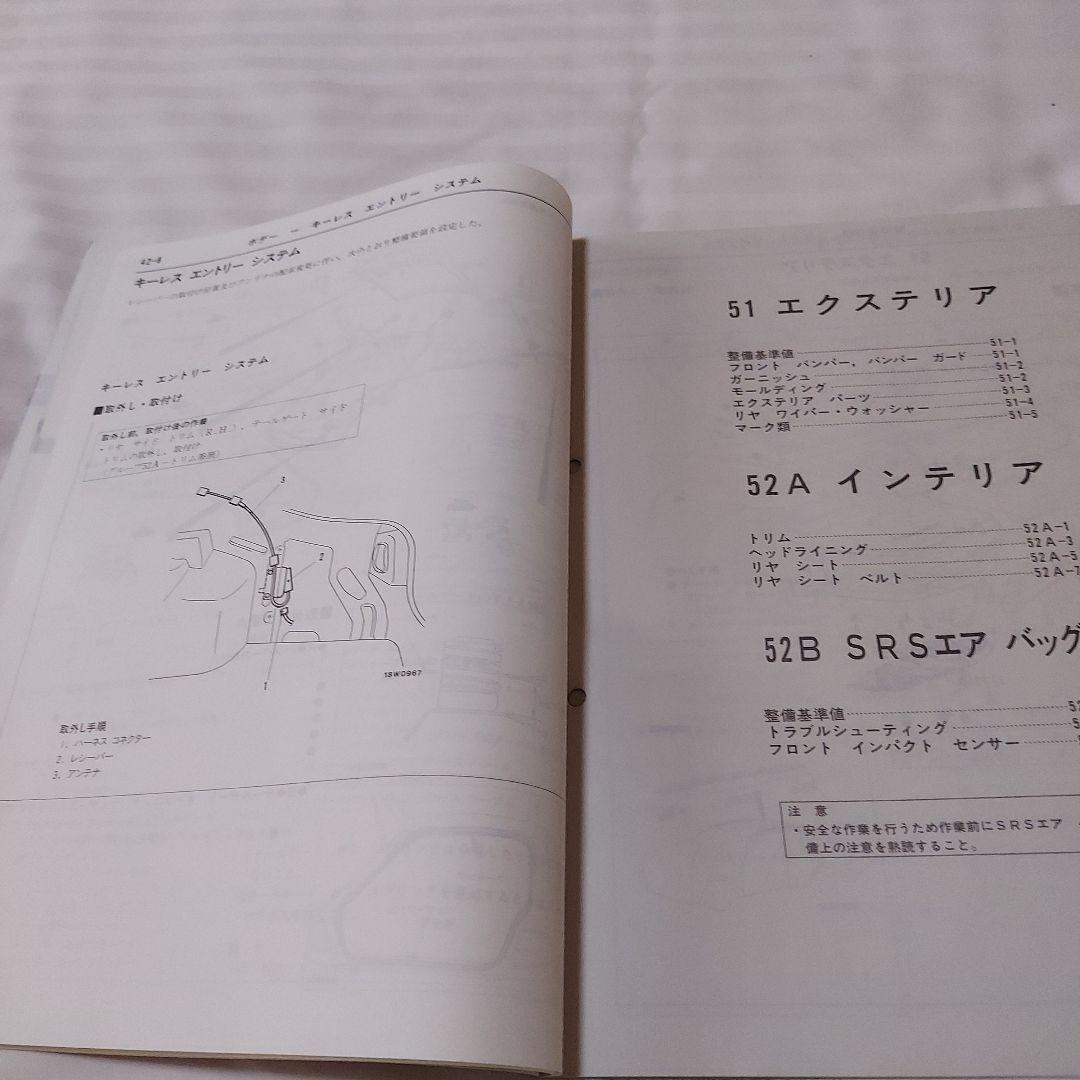 42-4
ボデー － キーレス エントリー システム
キーレス エントリー システム
レシーバーの取付け位置及びアンテナの配索変更に伴い、次のとおり整備要領を設定した。
キーレス エントリー システム
■取外し・取付け
取外し前、取付け後の作業
・リヤ サイド トリム（R.H.）、テールゲート サイド
トリムの取外し、取付け
（グループ52A－トリム参照）
3
2
1
18W0967
取外し手順
1. ハーネス コネクター
2. レシーバー
3. アンテナ
51 エクステリア
整備基準値 51-1
フロント バンパー, バンパー ガード 51-1
ガーニッシュ 51-2
モールディング 51-2
エクステリア パーツ 51-3
リヤ ワイパー・ウォッシャー 51-4
マーク類 51-5
52A インテリア
トリム 52A-1
ヘッドライニング 52A-3
リヤ シート 52A-5
リヤ シート ベルト 52A-7
52B SRSエア バッグ
整備基準値 52
トラブルシューティング 5
フロント インパクト センサー
注 意
・安全な作業を行うため作業前にSRSエア
備上の注意を熟読すること。